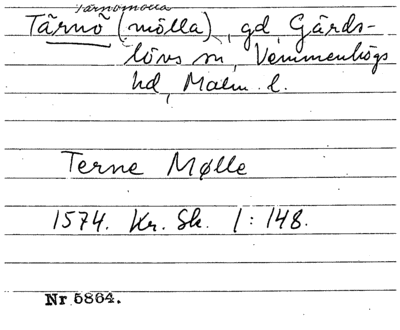 Tärnömölla
Tärnö (mölla), gd, Gärds-
lövs sn, Vemmenhögs
hd, Malm. l.
Terne Mølle
1574. Kr. Sk. 1:148.
Nr 5864.